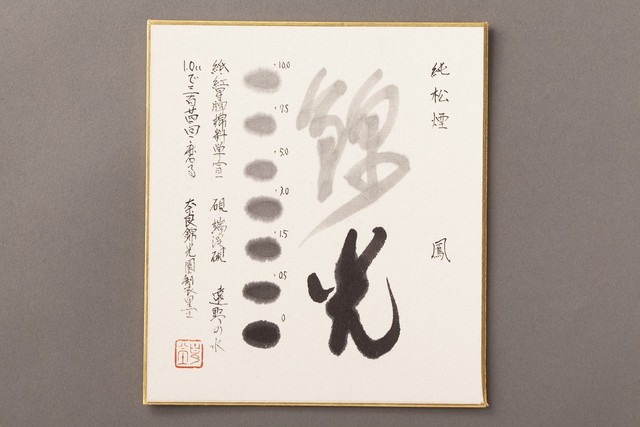 純松煙 鳳
錦光
10.0
7.5
5.0
3.0
1.5
0.5
0
紙・紅星牌棉料単宣 硯 端渓硯 の水
1.0ccで三百回・磨る 奈良錦光園製墨